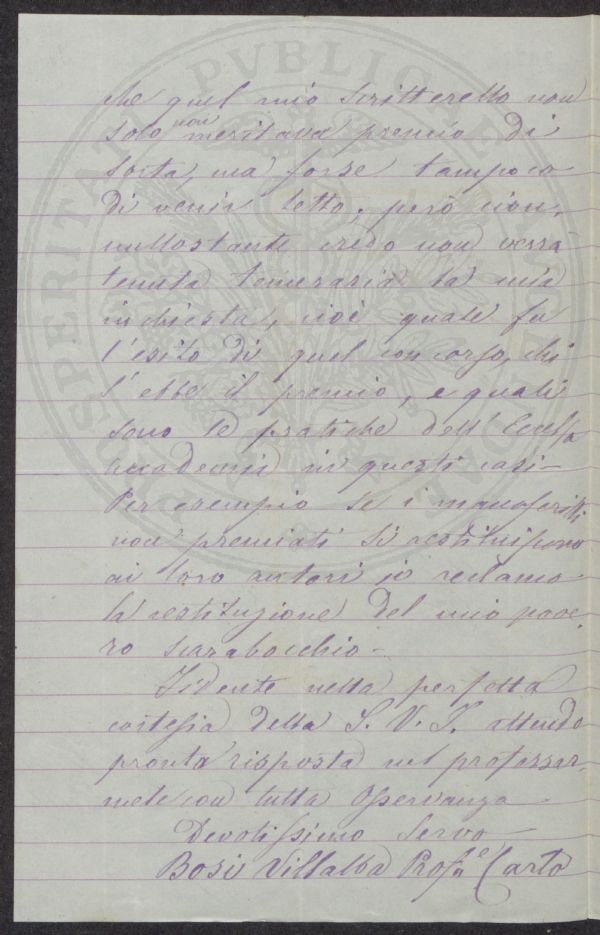 che quel mio scritterello non
solo non meritava premio di
sorta, ma forse tampoco
di venir letto, però non,
nullostante credo non verrà
tenuta temeraria la mia
inchiesta, cioè quale fu
l'esito di quel concorso, chi
s'ebbe il premio, e quali
sono le pratiche dell'Eccelsa
Accademia in questi casi –
Per esempio se i manoscritti
non premiati si restituiscono
ai loro autori io reclamo
la restituzione del mio pove,
ro scarabocchio –
Fidente nella perfetta
cortesia della S. V. I. attendo
pronta risposta nel professar,
mele con tutta Osservanza
Devotissimo Servo
Bosi Villalba Prof.e Carlo
PROSPERITATI PUBLICAE